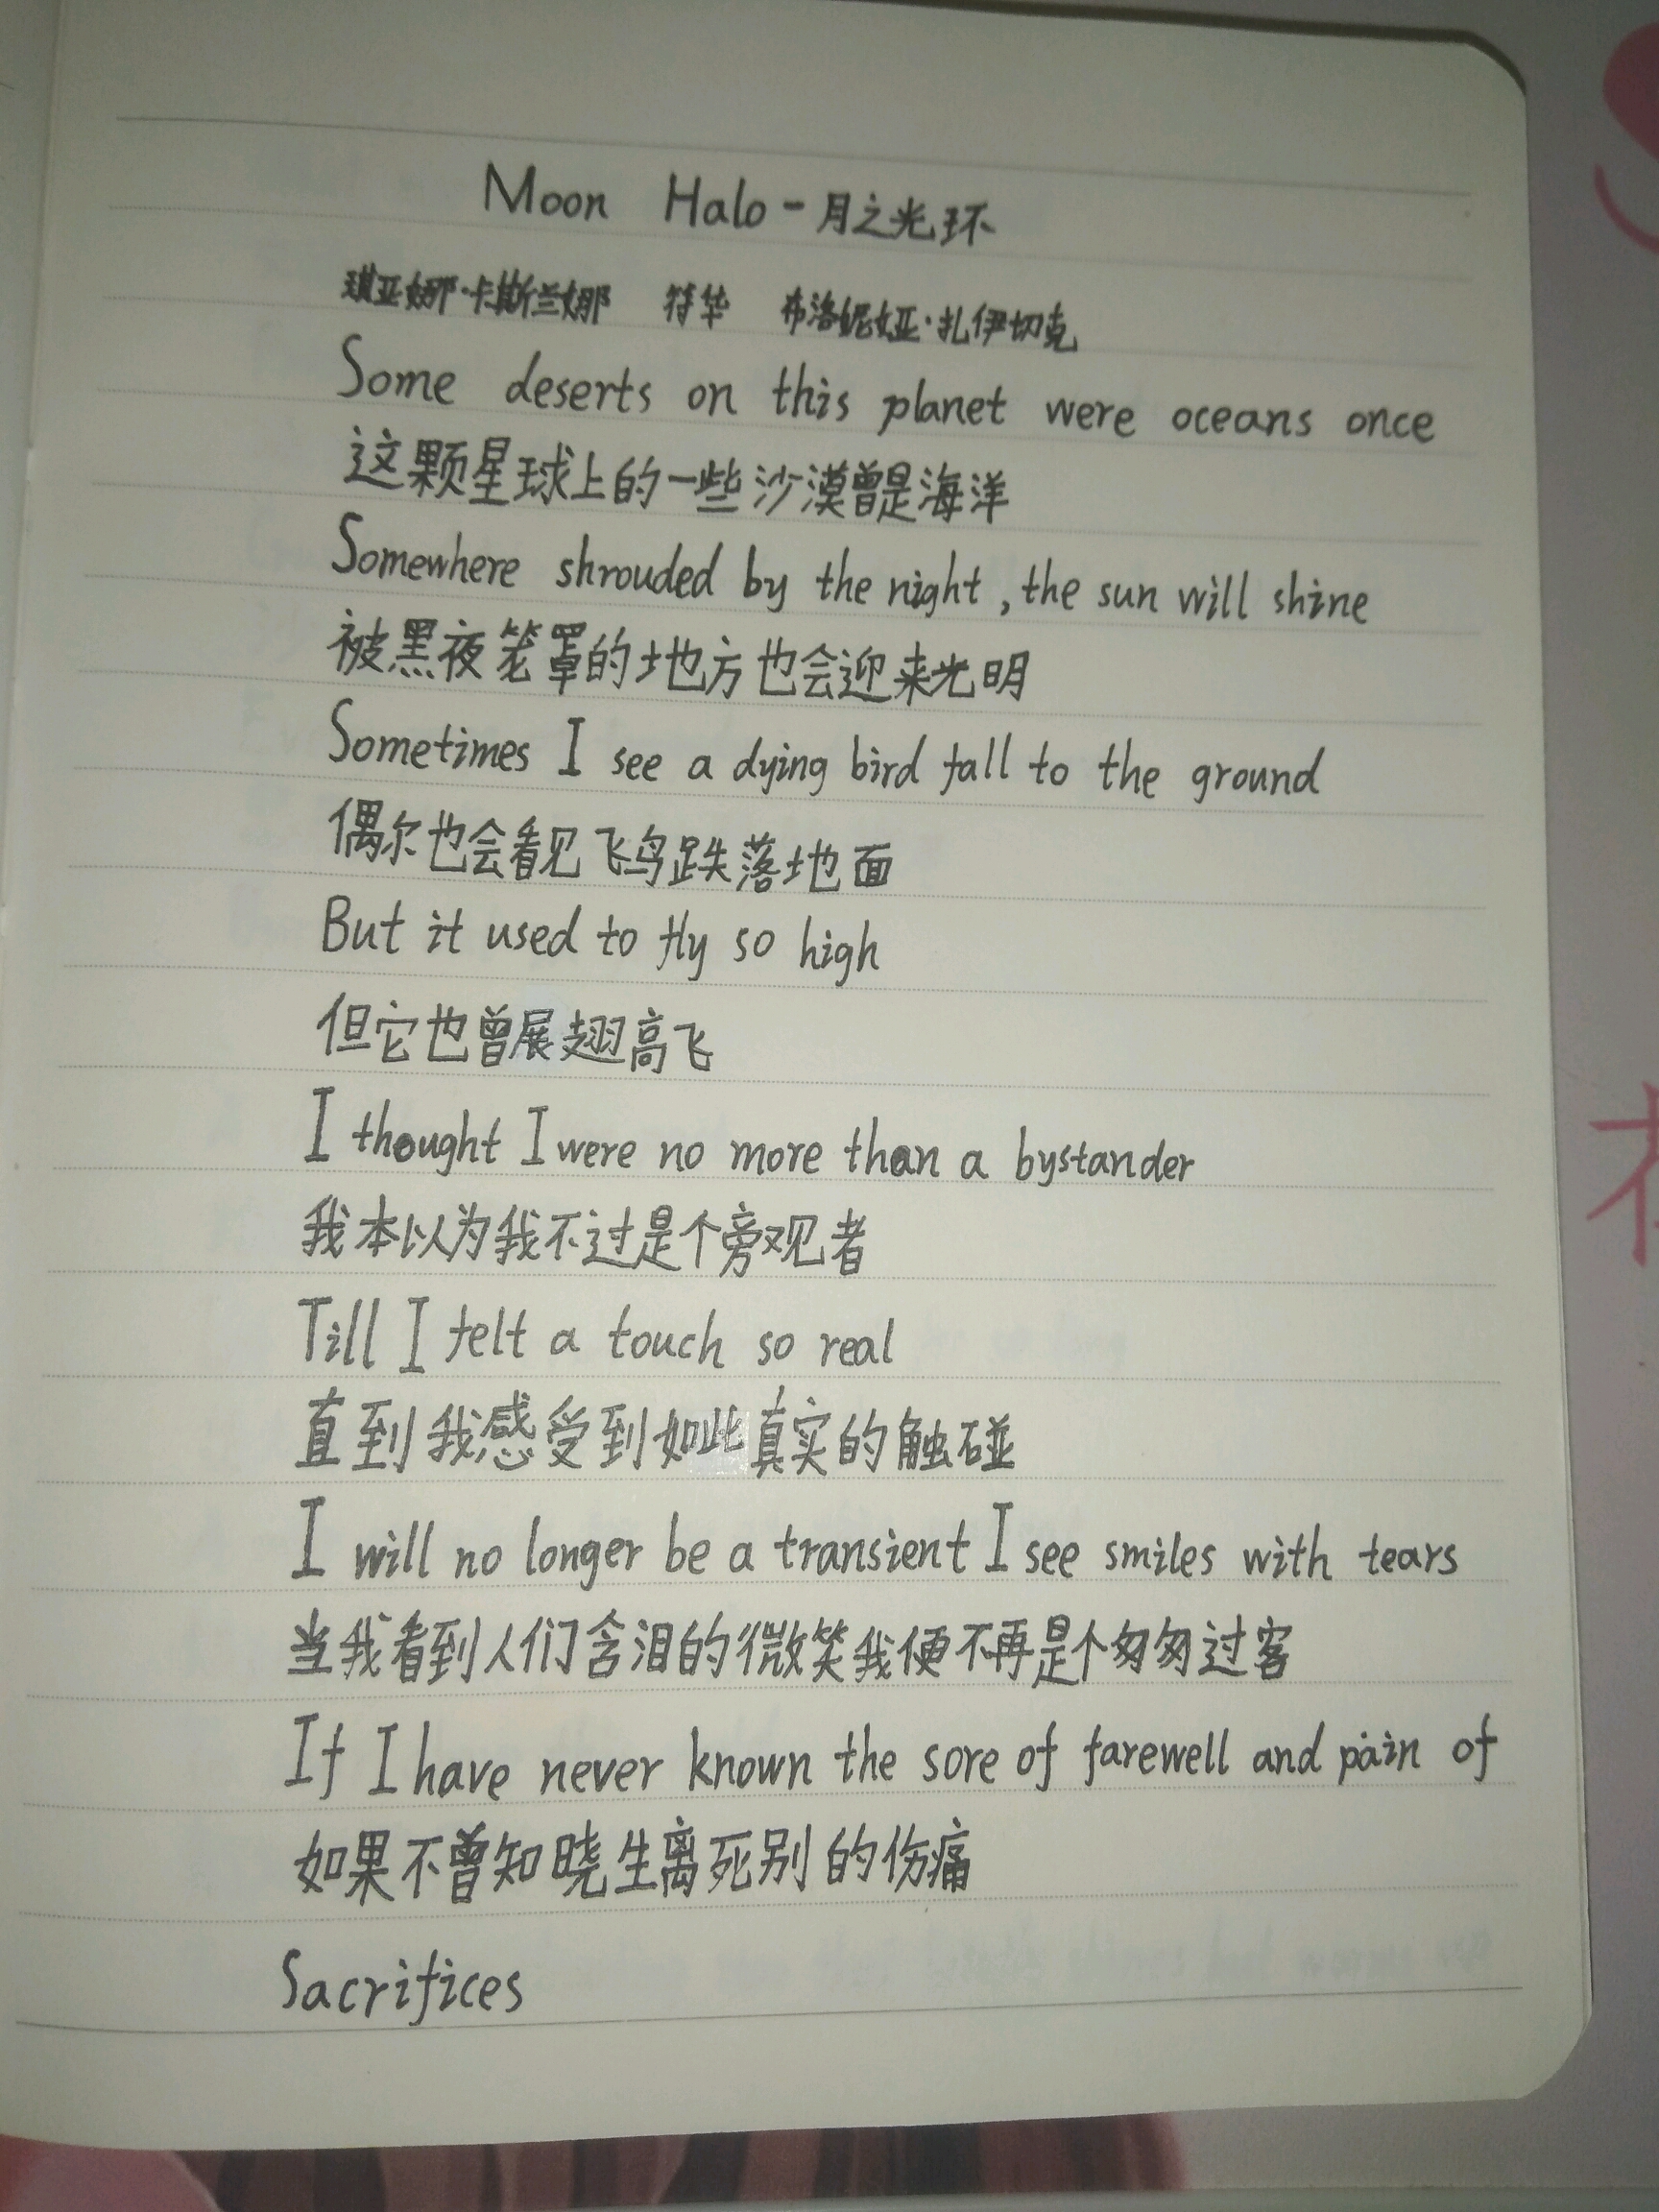 Moon Halo - 月之光环
琪亚娜·卡斯兰娜 符华 布洛妮娅·扎伊切克
Some deserts on this planet were oceans once
这颗星球上的一些沙漠曾是海洋
Somewhere shrouded by the night, the sun will shine
被黑夜笼罩的地方也会迎来光明
Sometimes I see a dying bird fall to the ground
偶尔也会看见飞鸟跌落地面
But it used to fly so high
但它也曾展翅高飞
I thought I were no more than a bystander
我本以为我不过是个旁观者
Till I felt a touch so real
直到我感受到如此真实的触碰
I will no longer be a transient I see smiles with tears
当我看到人们含泪的微笑我便不再是个匆匆过客
If I have never known the sore of farewell and pain of
如果不曾知晓生离死别的伤痛
Sacrifices